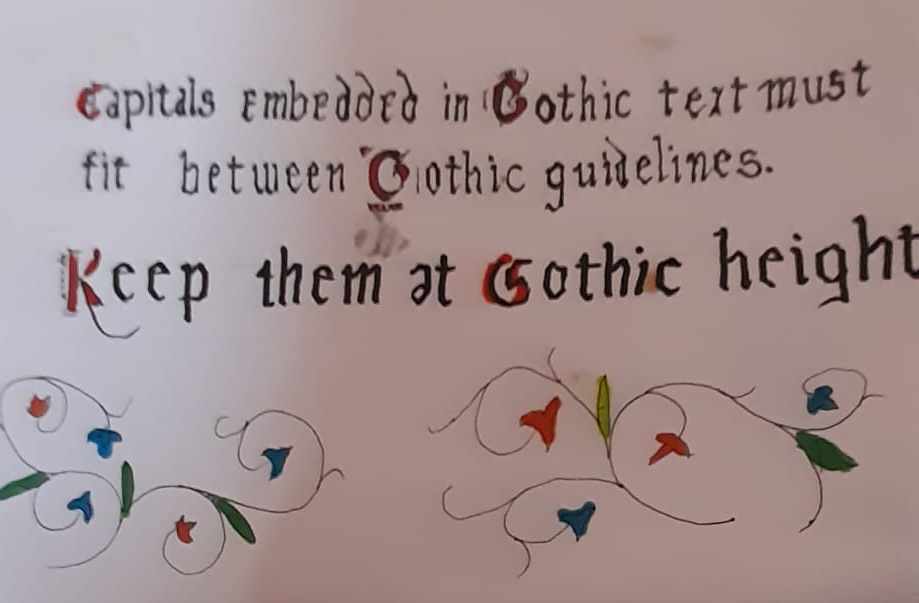 Capitals Embedded in Gothic text must
fit between Gothic guidelines.
Keep them at Gothic height